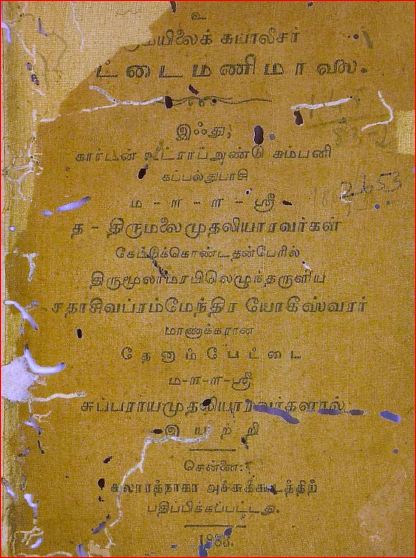 உ
மயிலைக் கபாலீசர்
ட்டைமணிமாலை.
இஃது,
கார்டன் உட்ராப் அண்டு கம்பனி
கப்பல்துபாசி
ம-ள-ள-ஸ்ரீ
த - திருமலைமுதலியாரவர்கள்
கேட்டுக்கொண்டதன்பேரில்
திருமூலர்மரபிலெழுந்தருளிய
சதாசிவப்ரம்மேந்திர யோகீஸ்வரர்
மாணாக்கரான
தேனாம்பேட்டை
ம-ள-ள-ஸ்ரீ
சுப்பராயமுதலியாரவர்களால்
இயற்றி
சென்னை:
கலாரத்நாகர அச்சுக்கூடத்திற்
பதிப்பிக்கப்பட்டது.